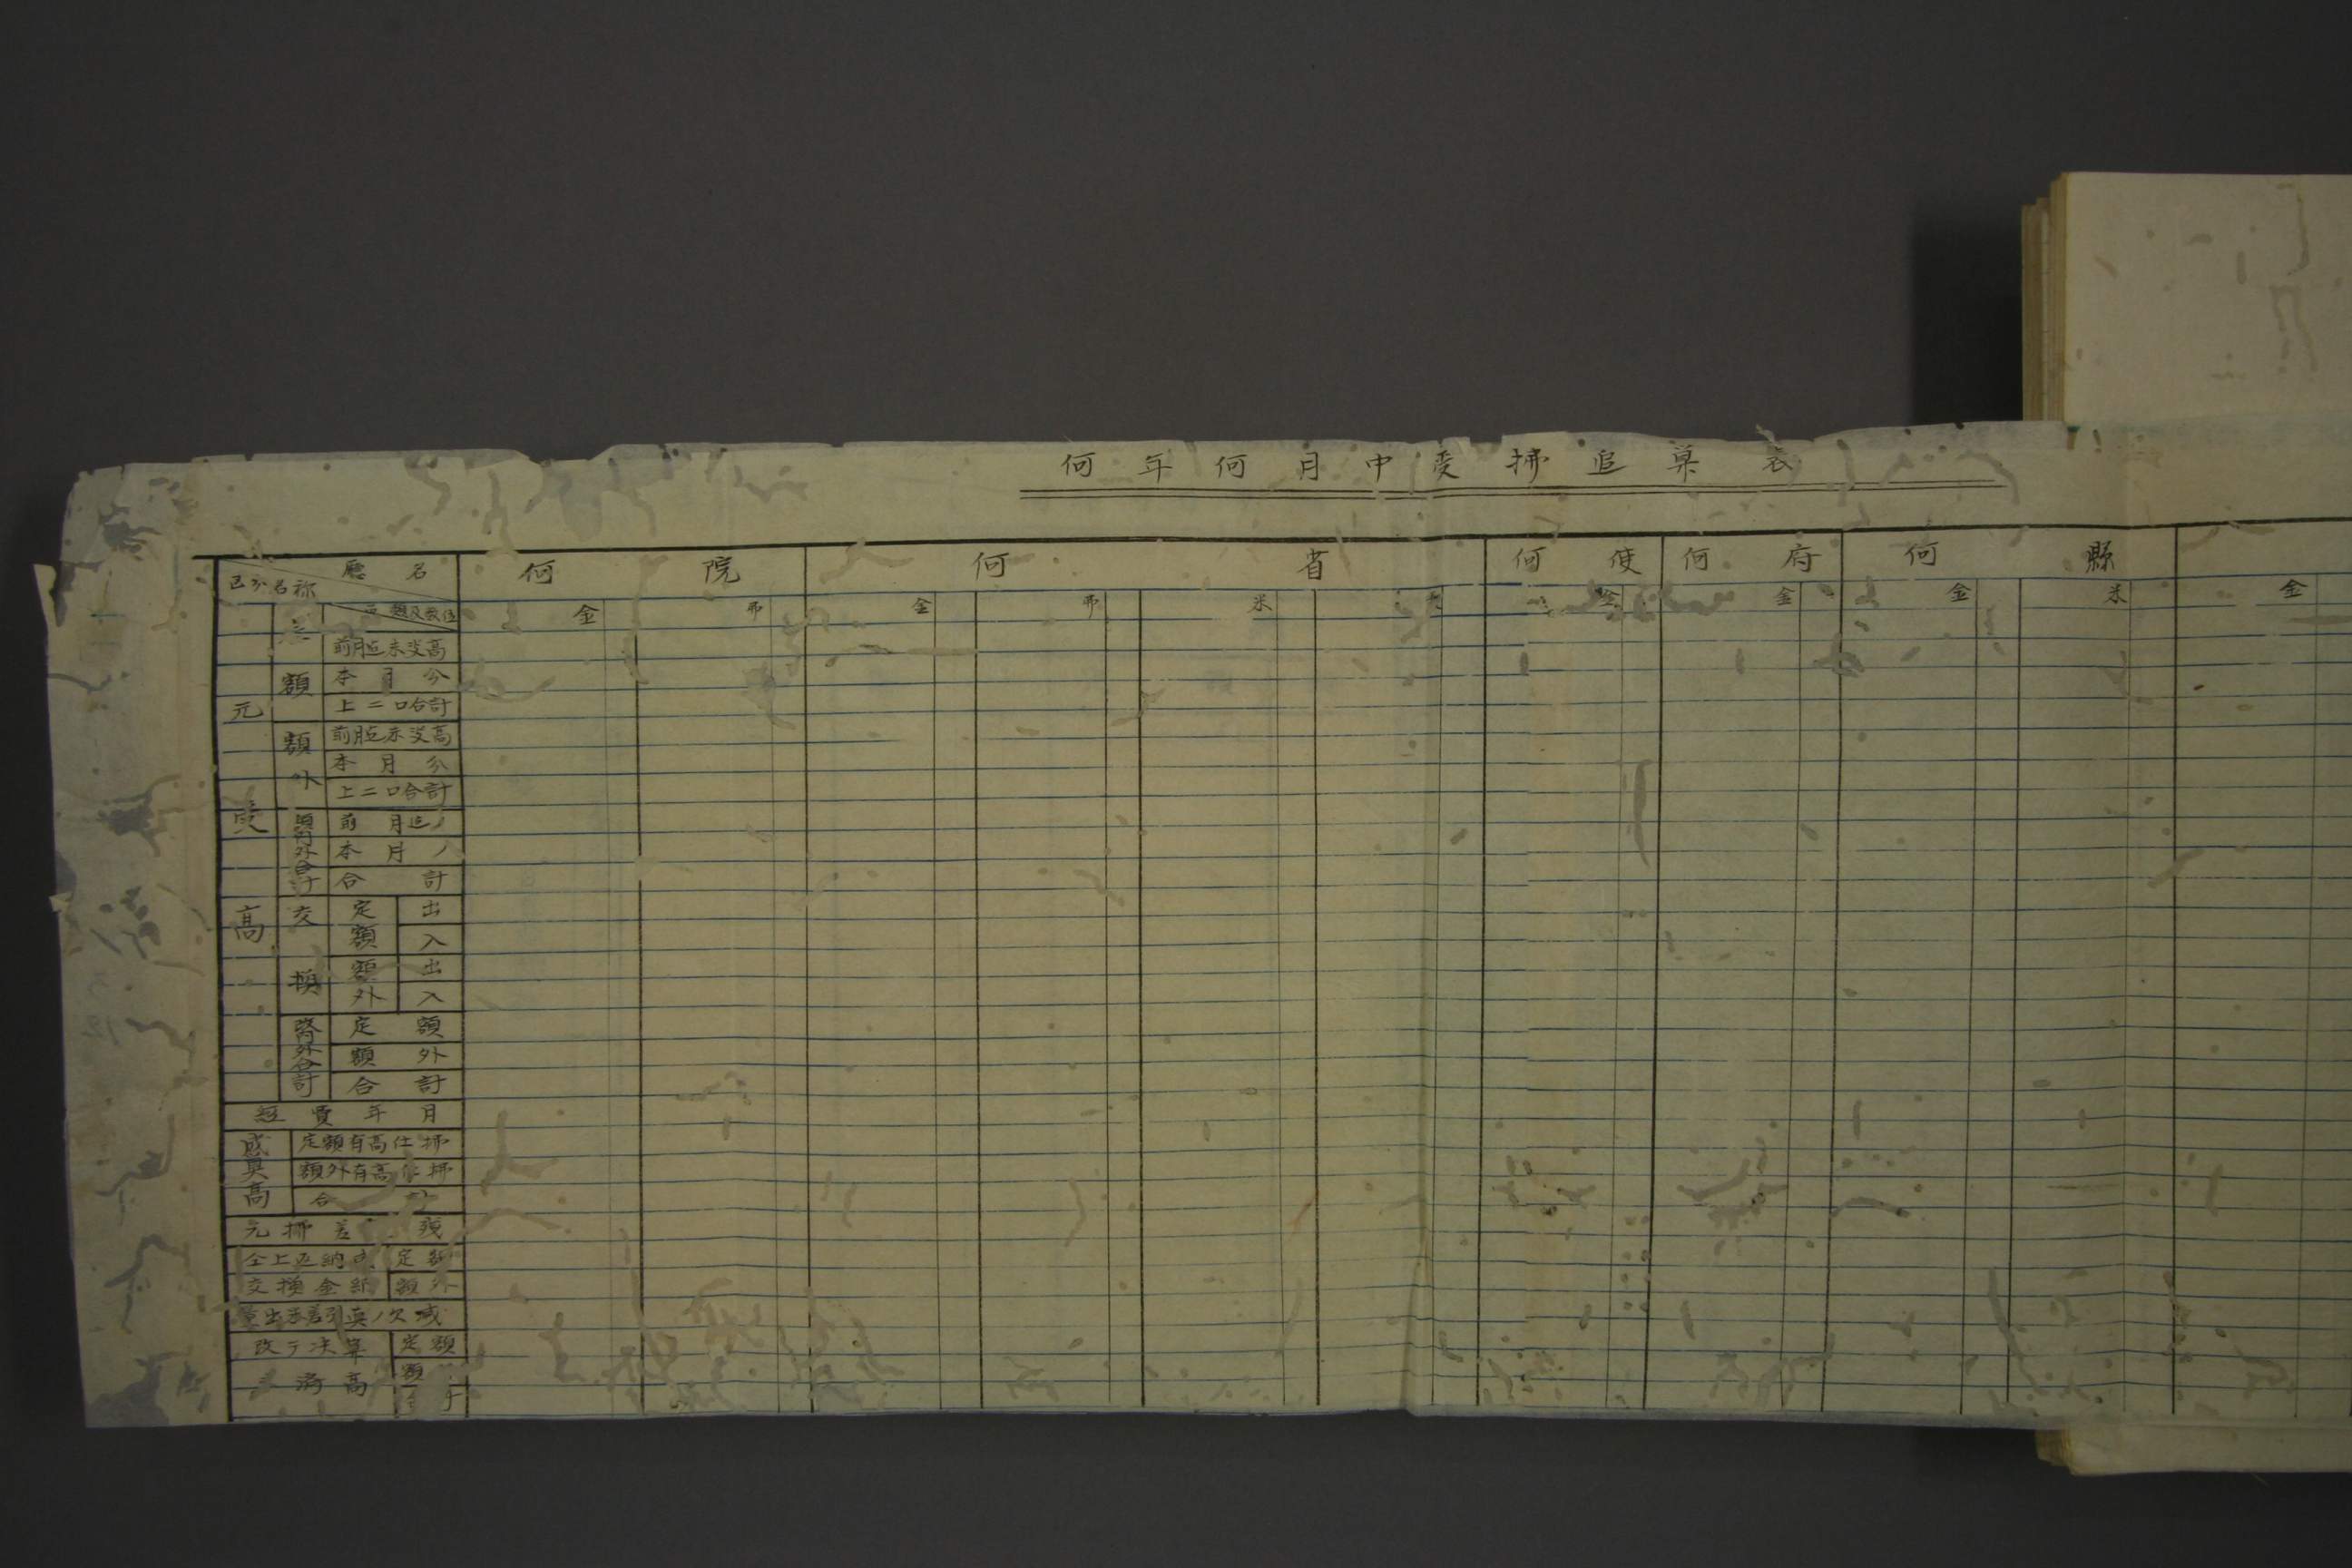 何年何月中受拂追算表
廳名
区分名称
類及数位
何院
何省
何使
何府
何縣
金
弗
金
弗
米
金
金
金
米
金
元受高
定額
前月迄未決高
本月分
上二口合計
額外
前月迄未決高
本月分
上二口合計
額内外合計
前月迄ノ
本月ノ
合計
交換
定額
出
入
額外
出
入
額内外合計
定額
額外
合計
経費年月
定額有高仕拂
額外有高仕拂
合計
元拂差引残
仝上返納高
定額
交換金紙
額外
改テ決算
定額
済高
額